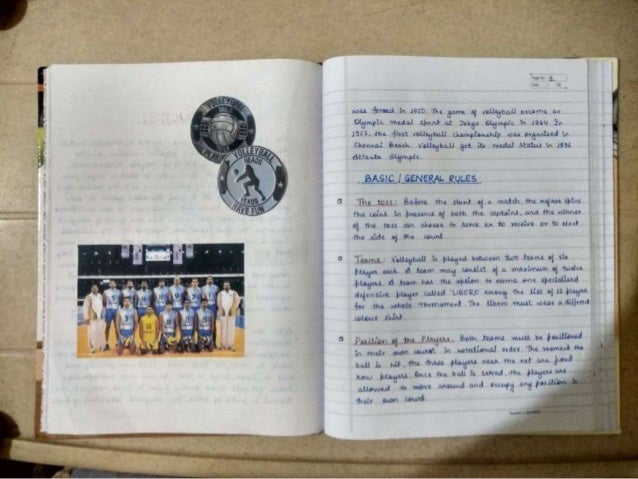 VOLLEYBALL
VOLLEYBALL
HEADS
HEADS
HAVE FUN
Page No. 2
Date
was formed in 1950. The game of volleyball became an
Olympic medal sport at Tokyo Olympic in 1964. In
1952, the first volleyball championship was organised in
Chennai. Beach Volleyball got its medal status in 1996
Atlanta Olympic.
BASIC / GENERAL RULES
The toss: Before the start of a match the refree spins
the coins in presence of both the captains, and the winner
of the toss can choose to serve or to receive or to elect
the side of the court.
Teams: Volleyball is played between two teams of six
players each. A team may consist of a maximum of twelve
players. A team has the option to name one specialised
defensive player called 'LIBERO' among the list of 12 players
for the whole tournament. The libero must wear a different
colour shirt.
Position of the Players: Both teams must be positioned
in their own court in rotational order. The moment the
ball is hit, the three players near the net are front
row players. Once the ball is served, the players are
allowed to move around and occupy any position in
their own court.
Teacher's Signature